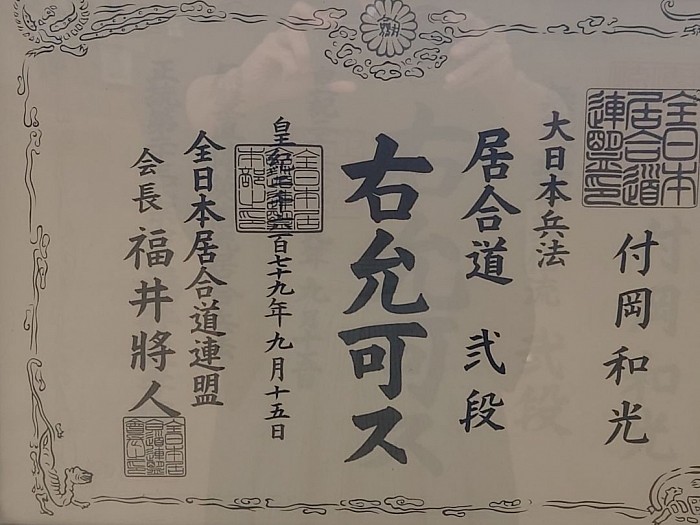 全日本居合道連盟印
付岡和光
大日本兵法
居合道 弐段
右允可ス
皇紀弐千六百七十九年九月十五日
全日本居合道連盟
会長 福井將人